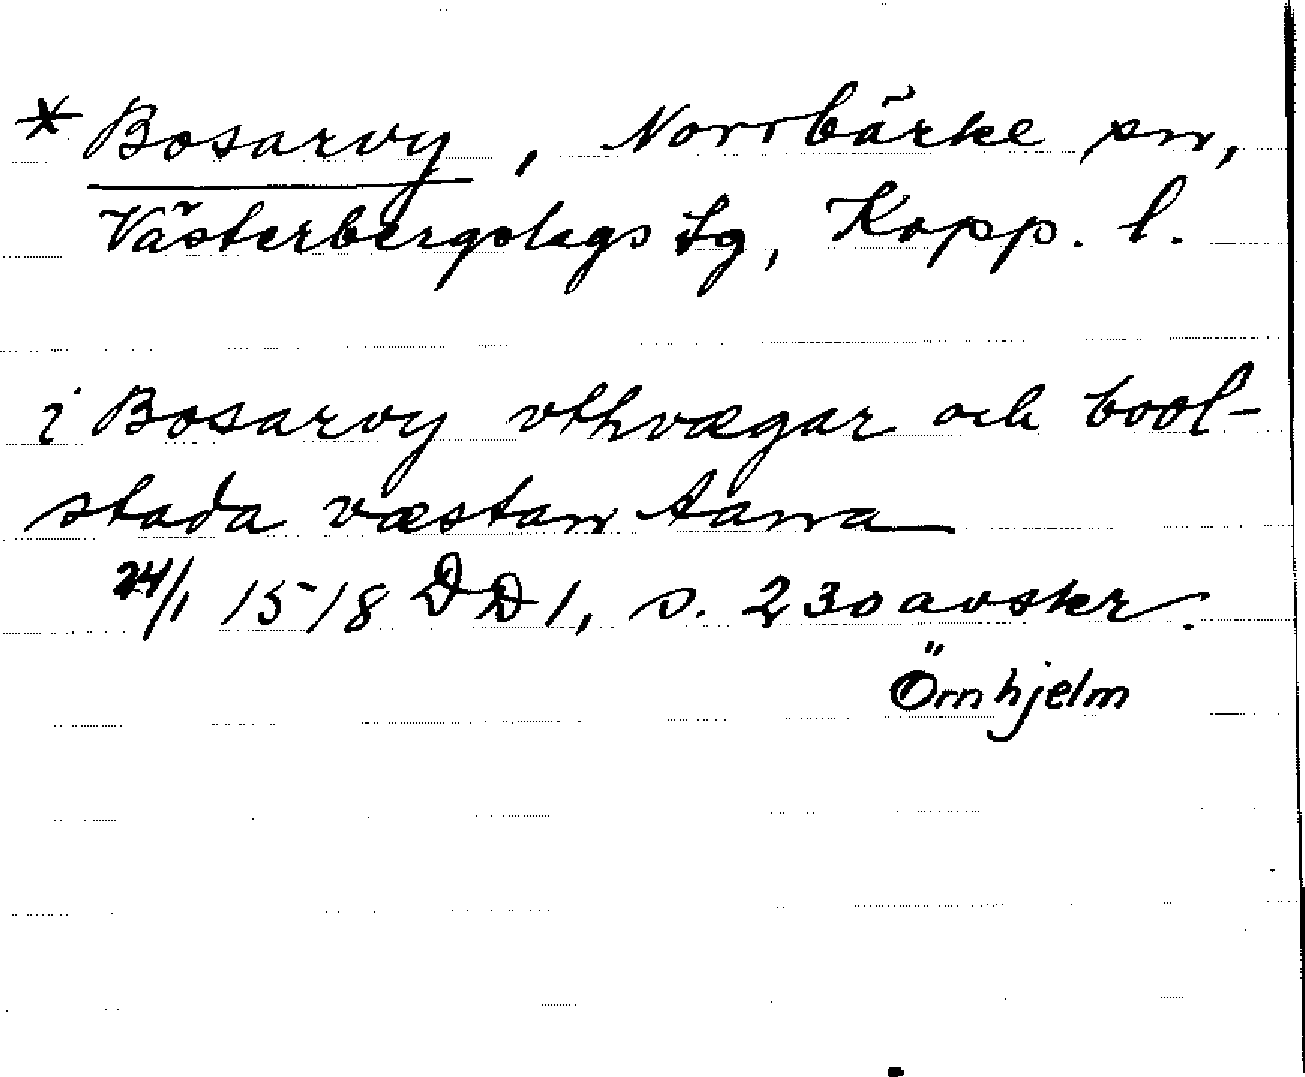 * Bosarvy, Norrbärke sn,
Västerbergslags tg, Kopp. l.
i Bosarvy vthvægar och bool-
stada væstan aanna
24/1 1518 DD 1, s. 230 avskr.
Örnhjelm